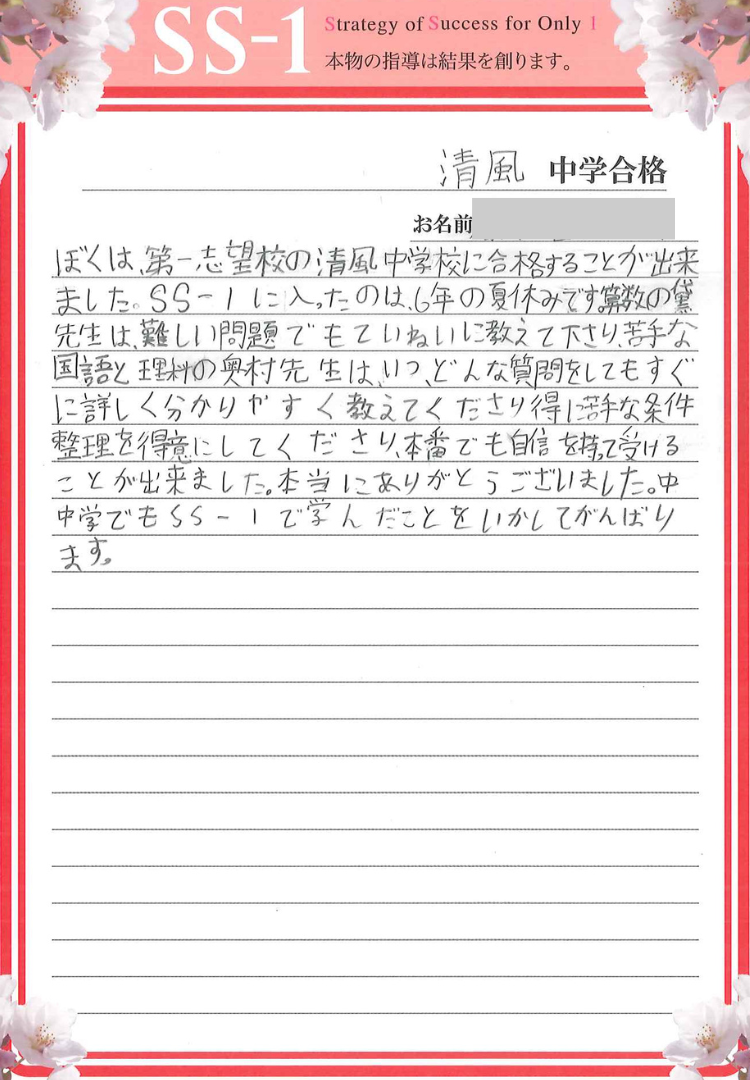 SS-1
Strategy of Success for Only 1
本物の指導は結果を創ります。
清風 中学合格
お名前
ぼくは、第一志望校の清風中学校に合格することが出来
ました。SS-1に入ったのは、6年の夏休みです。算数の黛
先生は、難しい問題でもていねいに教えて下さり、苦手な
国語と理科の奥村先生は、いつ、どんな質問をしてもすぐ
に詳しく分かりやすく教えてくださり得に苦手な条件
整理を得意にしてくださり、本番でも自信を持って受ける
ことが出来ました。本当にありがとうございました。中
中学でもSS-1で学んだことをいかしてがんばり
ます。